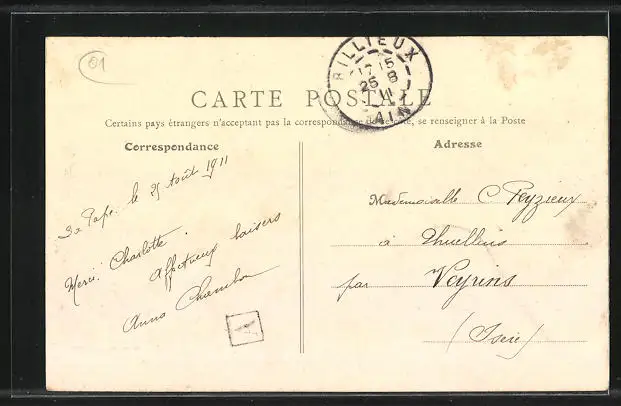 01
RILLIEUX
17 15
25 8
11
AIN
CARTE POSTALE
Certains pays étrangers n'acceptant pas la correspondance de ce côté, se renseigner à la Poste
Correspondance
Adresse
Pape. le 25 Août 1911
Merci Charlotte.
Affectueux baisers
Anna Chambon
A
Mademoiselle C. Peyzieux
à Thuellins
par Veyrins
(Isère)